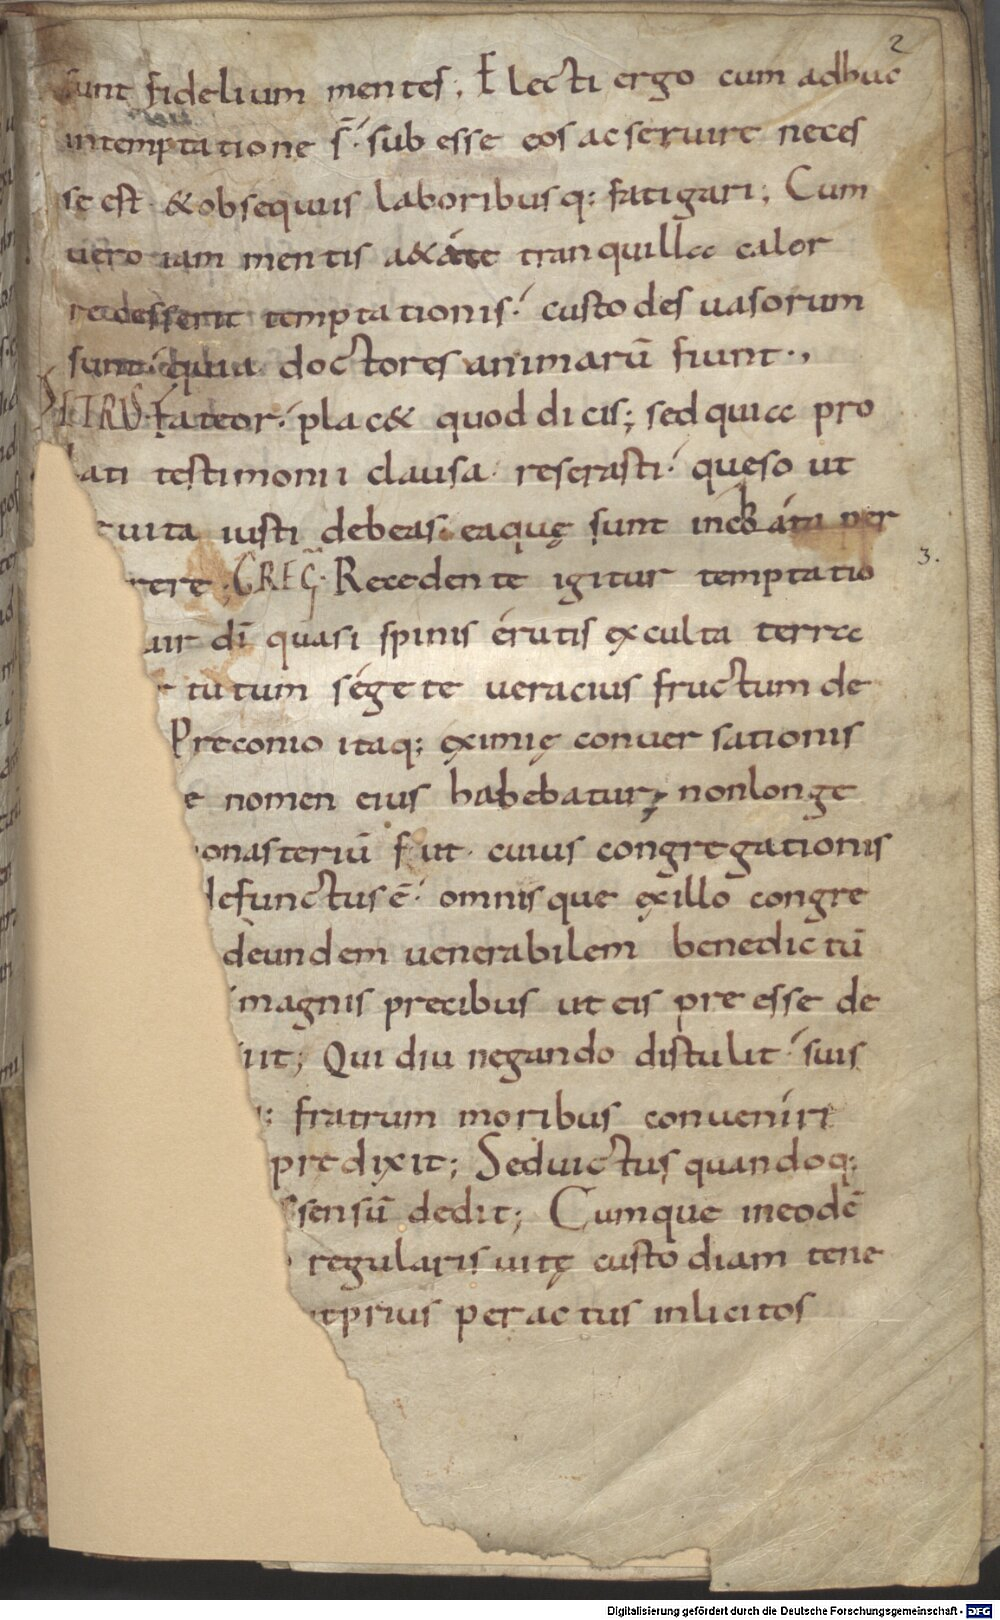 2
sunt fidelium mentes. Electi ergo cum adhuc
intemptatione s̄ sub esse eos ac seruire neces
se est & obsequiis laboribusq; fatigari; Cum
uero iam mentis a&ate tranquilla calor
recesserit temptationis custodes uasorum
sunt quia doctores animarū fiunt.,
PETRV̄ Fateor plac& quod dicis; sed quia pro
lati testimonii clausa reserasti queso ut
uita iusti debeas eaquę sunt incḥoata per
rere. GREG̃. Recedente igitur temptatio
uir dī quasi spinis erutis exculta terra
tutum segete ueracius fructum de
Preconio itaq; eximię conuersationis
e nomen eius habebatur; non longe
onasteriū fuit cuius congregationis
defunctus ē omnisque ex illo congre
deundem uenerabilem benedictū
magnis precibus ut eis pre esse de
iit; Qui diu negando distulit suis
q; fratrum moribus conueniri
predixit; Sed uictus quandoq;
sensū dedit; Cumque in eodē
regularis uitę custodiam tene
ut prius per actus inlicitos
3.
Digitalisierung gefördert durch die Deutsche Forschungsgemeinschaft - DFG